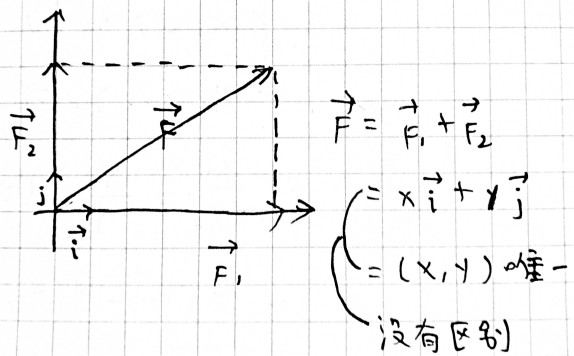 F₂
F
j
i
F₁
F = F₁ + F₂
= x i + y j
= (x, y) 唯一
没有区别